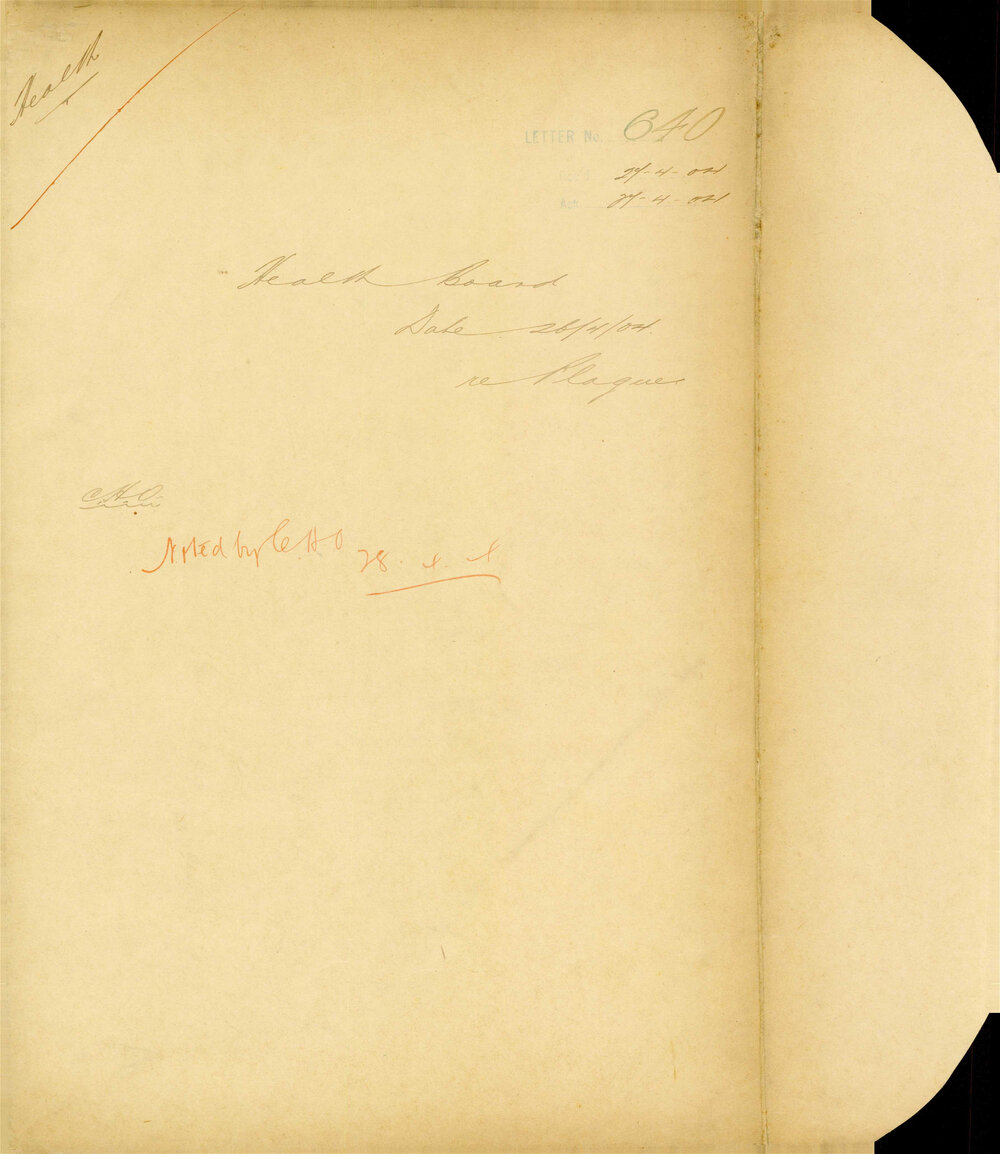 Health
LETTER No. 640
27-4-04
Ack 27-4-04
Health Board
Date 26/4/04.
re Plague
CHO
Noted by C.H.O 28.4.4